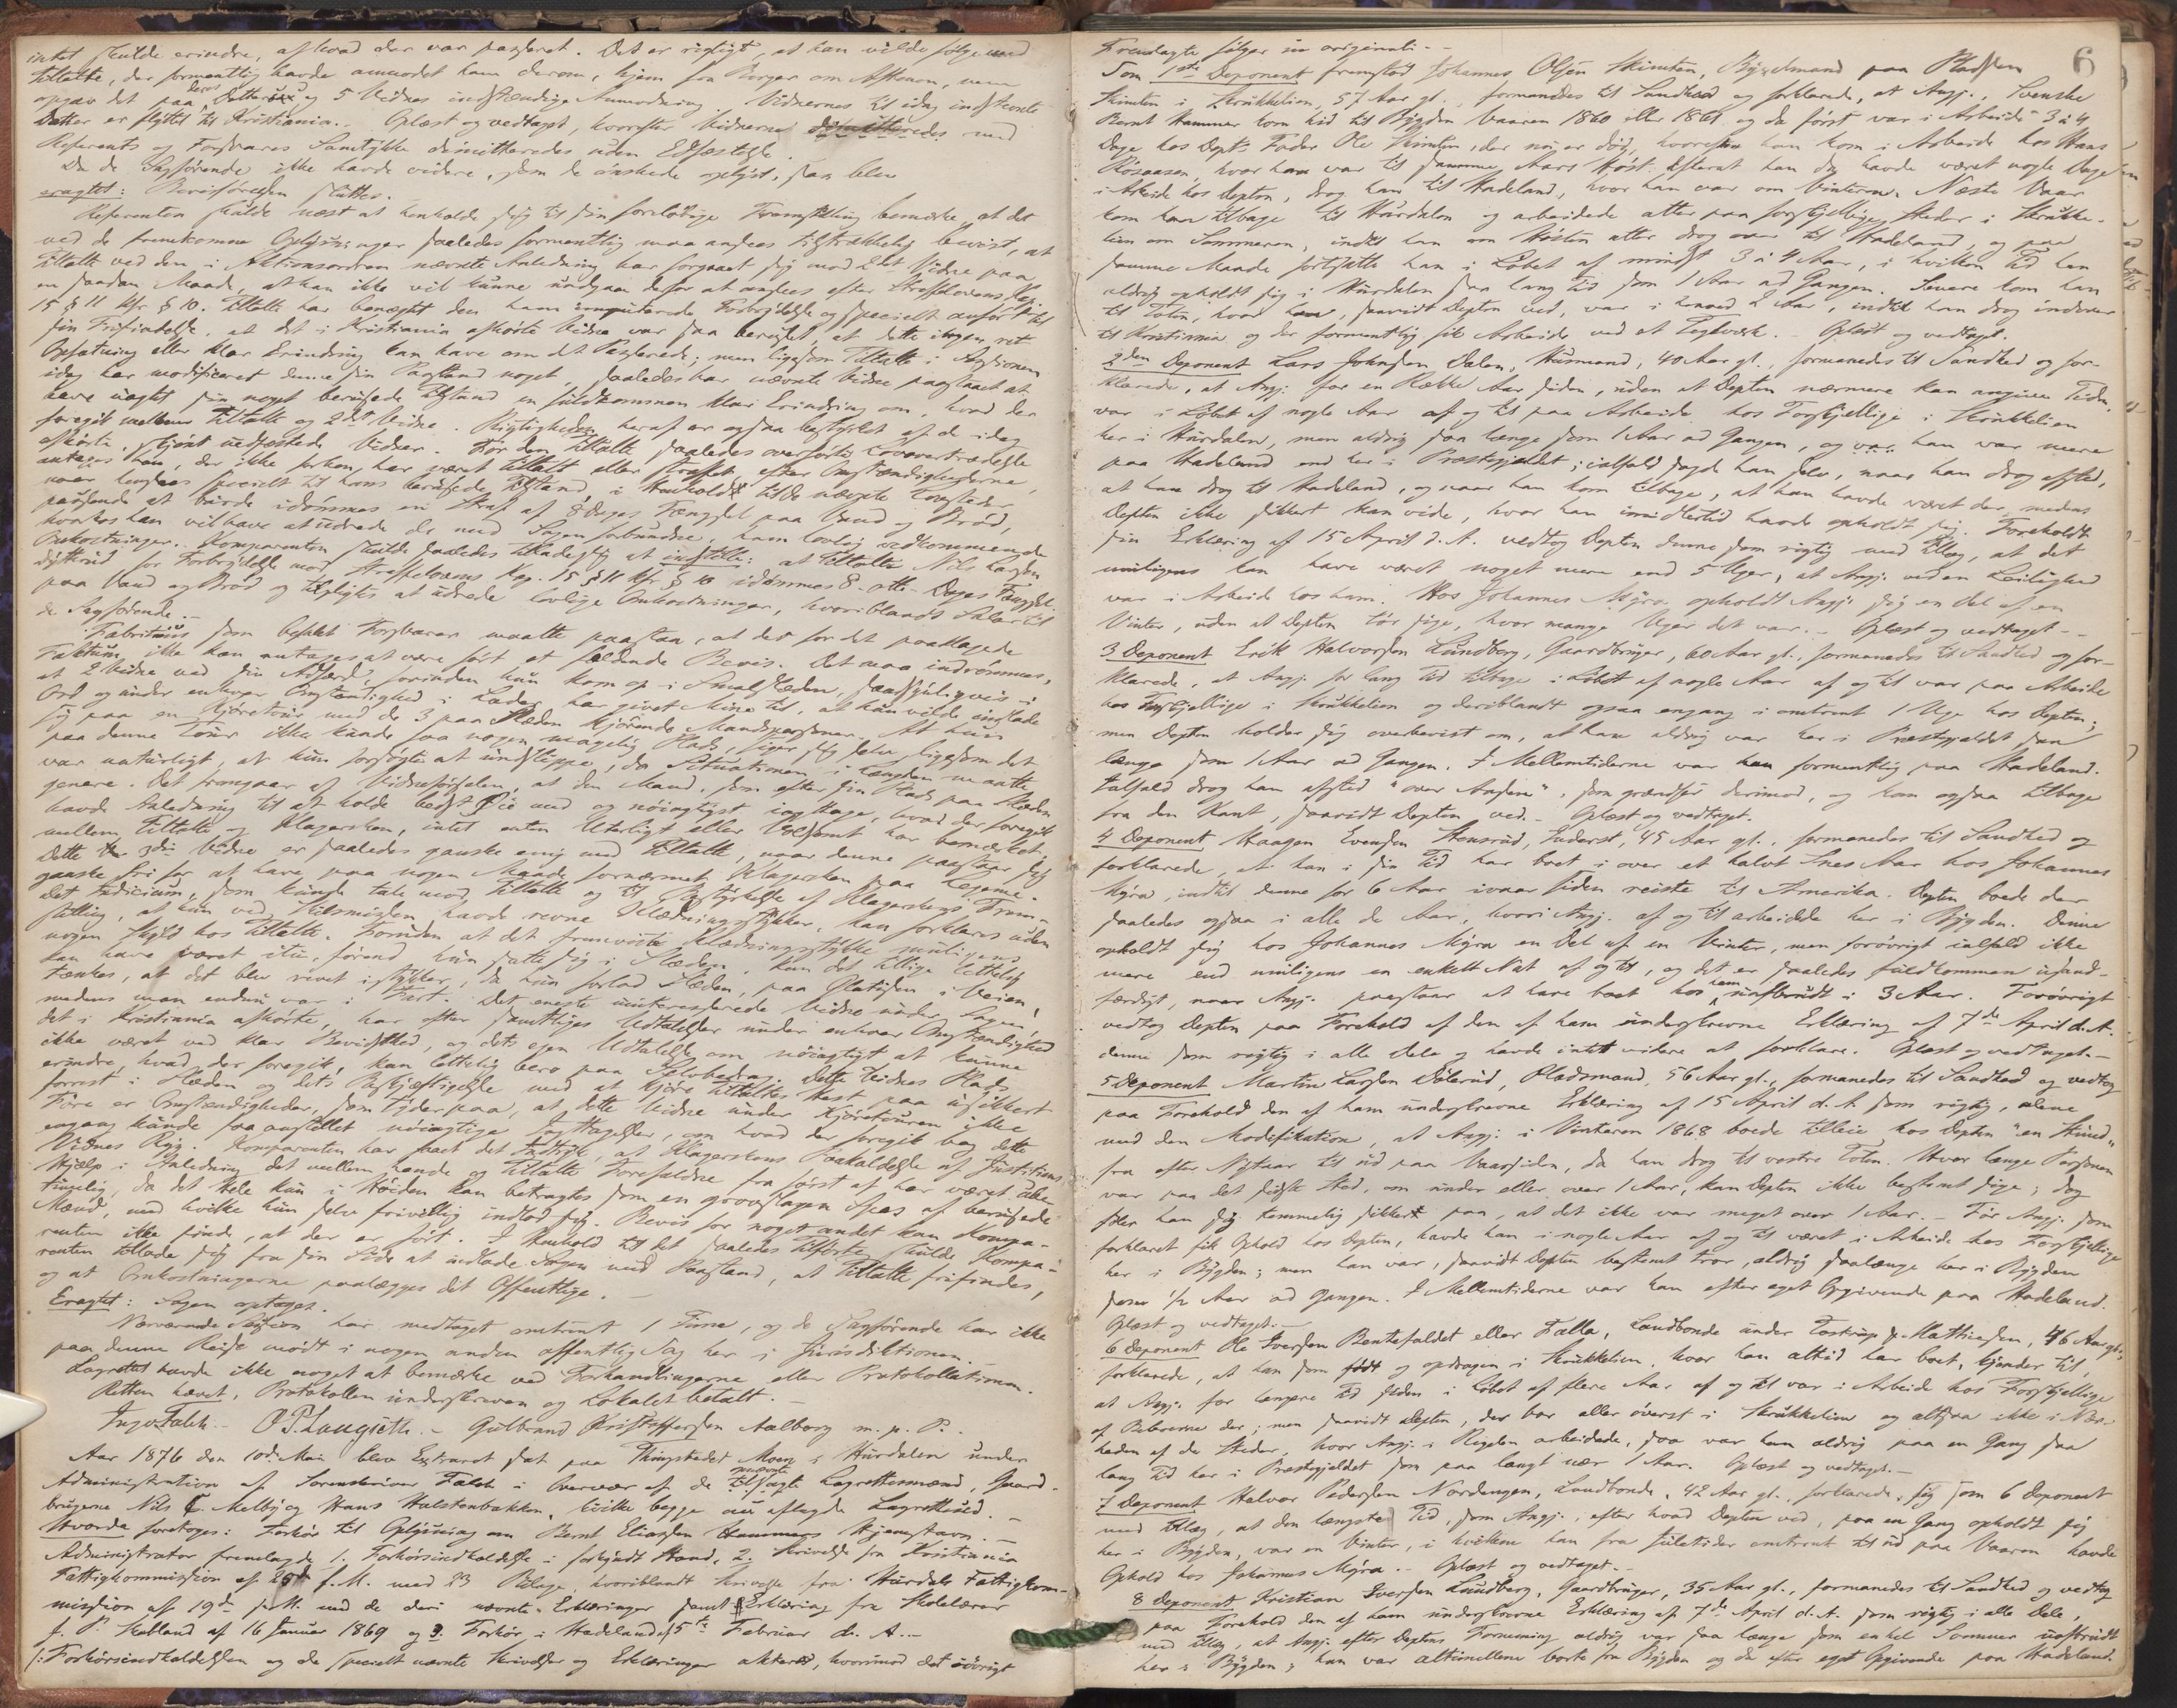 intet skulde erindre, af hvad der var passeret. Det er rigtigt, at han vilde følge med
Tiltalte, der formentlig havde anmodet ham derom, hjem fra Borger om Aftenen, men
opgav det paa deres Datters og 5 Vidnes indstændige Anmodning. Vidnernes til idag indstevnte
Datter er flyttet til Kristiania. Oplæst og vedtaget, hvorefter Vidnerne dimitteredes med
Referents og Forsvarers Samtykke dimitteredes uden Edfæstelse.
Da de Sagførende ikke havde videre, som de ønskede oplyst, saa blev
eragtet: Bevisførelsen sluttes.
Referenten skulde næst at henholde sig til sin foreløbige Fremstilling bemærke, at det
ved de fremkomne Oplysninger saaledes formentlig maa ansees tilstrækkelig bevist, at
Tiltalte ved den i Aktionsordren nævnte Anledning har forgaaet sig mod 2det Vidne paa
en saadan Maade, at han ikke vil kunne undgaa derfor at ansees efter Straffelovens Kap.
15 § 11 kfr. § 10. Tiltalte har benægtet den ham imputerede Forbrydelse og specielt anført til
sin Frifindelse, at det i Kristiania afhørte Vidne var saa beruset, at dette ingen ret
Opfatning eller klar Erindring kan have om det Passerede; men ligesom Tiltalte i Sessionen
idag har modificeret denne sin Paastand noget, saaledes har nævnte Vidne paastaaet at
have uagtet sin noget berusede Tilstand en fuldkommen klar Erindring om, hvad der
foregik mellem Tiltalte og 2det Vidne. Rigtigheden heraf er ogsaa bestyrket af de idag
afhørte, skjønt uedfæstede Vidner. For den Tiltalte saaledes overførte Lovovertrædelse
antages han, der ikke forhen har været tiltalt eller straffet, efter Omstændighederne,
naar hensees specielt til hans berusede Tilstand, i Henhold til de nævnte Lovsteder
passende at burde idømmes en Straf af 8 Dages Fængsel paa Vand og Brød,
hvorhos han vil have at udrede de med Sagen forbundne, ham lovlig vedkommende
Omkostninger. Komparenten skulde saaledes tillade sig at indstille: at Tiltalte Nils Larsen
Dyttrud for Forbrydelse mod Straffelovens Kap. 15 § 11 kfr. § 10 idømmes 8 - otte - Dages Fængsel
paa Vand og Brød og tilpligtes at udrede lovlige Omkostninger, hvoriblandt Salær til
de Sagførende.
Fabritius som befalet Forsvarer maatte paastaa, at der for det paaklagede
Faktum ikke kan antages at være ført et fældende Bevis. Det maa indrømmes,
at 2 Vidne ved sin Adfærd, forinden hun kom op i Smalslæden, sandsynligvis i
Ord og under enhver Omstændighed i Lader har givet Mine til, at hun vilde indlade
sig paa en Kjøretour med de 3 paa Slæden kjørende Mandspersoner. At hun
paa denne Tour ikke kunde faa nogen magelig Plads, siger sig selv, ligesom det
var naturligt, at hun forsøgte at undslippe, da Situationen i Længden maatte
genere. Det fremgaar af Vidneførselen, at den Mand, som efter sin Plads paa Slæden
havde Anledning til at holde bedst Øie med og nøiagtigst iagttage, hvad der foregik
mellem Tiltalte og Klagersken, intet enten Uterligt eller Voldsomt har bemærket.
Dette 3die Vidne er saaledes ganske enig med Tiltalte, naar denne paastaar sig
ganske fri for at have paa nogen Maade fornærmet Klagersken paa Legeme.
Det Indicium, som kunde tale mod Tiltalte og til Bestyrkelse af Klagerskens Frem-
stilling, at hun ved Hilsmislen havde revne Klædningsstykker, kan forklares uden
nogen Skyld hos Tiltalte. Foruden at det fremviste Klædningsstykke muligens
kan have været itu, førend hun satte sig i Slæden, kan det tillige lettelig
tænkes, at det blev revet istykker, da hun forlod Slæden, paa Glatisen i Veien,
medens man endnu var i Fart. Det eneste uinteresserede Vidne under Sagen,
det i Kristiania afhørte, har efter samtliges Udtalelser under enhver Omstændighed
ikke været ved klar Bevidsthed, og dets egen Udtalelse om nøiagtigt at kunne
erindre, hvad der foregik, kan lettelig bero paa Selvbedrag. Dette Vidnes Plads
forrest i Slæden og dets Beskjæftigelse med at kjøre Tiltaltes Hest paa usikkert
Føre er Omstændigheder, som tyder paa, at dette Vidne under Kjøretouren ikke
engang kunde faa anstillet nøiagtige Iagttagelser, om hvad der foregik bag dette
Vidnes Ryg. Komparenten har faaet det Indtryk, at Klagerskens Paakaldelse af Justitiens
Hjælp i Anledning det mellem hende og Tiltalte Forefaldne fra først af har været ikke
tungelig, da det Hele kun i Høiden kan betragtes som en grovslagen Spas af berusede
Mænd, med hvilke hun selv frivillig indlod sig. Bevis for noget andet kan Kompa-
renten ikke finde, at der er ført. I Henhold til det saaledes Tilførte skulde Kompa-
renten tillade sig fra sin Side at indlade Sagen med Paastand, at Tiltalte frifindes,
og at Omkostningerne paalægges det Offentlige.
Eragtet: Sagen optages.
Nærværende Session har medtaget omtrent 1 Time, og de Sagførende har ikke
paa denne Reise mødt i nogen anden offentlig Sag her i Jurisdiktionen.
Lagretten havde ikke noget at bemærke ved Forhandlingerne eller Protokollationen.
Retten hævet, Protokollen underskreven og Lokalet betalt.
Ingv. Falch. O. P. Laugsieth. Gulbrand Kristoffersen Aalborg m. p. P.
Aar 1876 den 10de Mai blev Extraret sat paa Thingstedet Moen i Hurdalen under
Administration af Sorenskriver Falch i Overvær af de tilsagte nævnte Lagrettesmænd, Gaard-
brugerne Nils C. Melby og Hans Halstenbakken, hvilke begge nu aflagde Lagretteed.
Hvorda foretoges: Forhør til Oplysning om Bernt Eliassen Hammers Hjemstavn.
Administrator fremlagde 1. Forhørsindkaldelse i forkyndt Stand, 2. Skrivelse fra Kristiania
Fattigkommission af 25de f. M. med 23 Bilage, hvoriblandt Skrivelse fra Hurdals Fattigkom-
mission af 19de s. M. med de deri nævnte Erklæringer samt Erklæring fra Skolelærer
J. P. Skabland af 16 Januar 1869 og 3. Forhør i Hadeland af 5te Februar d. A.
/: Forhørsindkaldelsen og de specielt nævnte Skrivelser og Erklæringer akteres, hvorimod det øvrigt
6
Fremlagte følger in originali.
Som 1ste Deponent fremstod Johannes Olsen Skinsten, Bygselmand paa Pladsen
Skinsten i Skrukkelien, 57 Aar gl., formanedes til Sandhed og forklarede, at Angj., Svenske
Bernt Hammer kom hid til Bygden Vaaren 1860 eller 1861 og da først var i Arbeide 3 à 4
Dage hos Dept's Fader Ole Skinsten, der nu er død, hvorefter han kom i Arbeide hos Hans
Rösaasen, hvor han var til samme Aars Høst. Efterat han da havde været nogle Dage
i Arbeide hos Depten, drog han til Hadeland, hvor han var om Vinteren. Næste Vaar
kom han tilbage til Hurdalen og arbeidede atter paa forskjellige Steder i Skrukke-
lien om Sommeren, indtil han om Høsten atter drog over til Hadeland, og paa
samme Maade fortsatte han i Løbet af mindst 3 à 4 Aar, i hvilken Tid han
aldrig opholdt sig i Hurdalen saa lang Tid som 1 Aar ad Gangen. Senere kom han
til Toten, hvor han, saavidt Depten ved, var i henved 2 Aar, indtil han drog indover
til Kristiania og der formentlig fik Arbeide ved et Teglværk. Oplæst og vedtaget.
2den Deponent Lars Johnsen Dalen, Husmand, 40 Aar gl., formanedes til Sandhed og for-
klarede, at Angj. for en Række Aar siden, uden at Depten nærmere kan angive Tiden,
var i Løbet af nogle Aar af og til paa Arbeide hos Forskjellige i Skrukkelien
her i Hurdalen, men aldrig saa længe som 1 Aar ad Gangen, og var han var mere
paa Hadeland end her i Præstegjældet; ialfald sagde han selv, naar han drog afsted,
at han drog til Hadeland, og naar han kom tilbage, at han havde været der, medens
Depten ikke sikkert kan vide, hvor han imidlertid havde opholdt sig. Foreholdt
sin Erklæring af 15 April d. A. vedtog Depten denne som rigtig med Tillæg, at det
muligens kan have været noget mere end 5 Uger, at Angj. ved en Leilighed
var i Arbeide hos ham. Hos Johannes Myra opholdt Angj. sig en Del af en
Vinter, uden at Depten tør sige, hvor mange Uger det var. Oplæst og vedtaget.
3 Deponent Erik Halvorsen Lundberg, Gaardbruger, 60 Aar gl., formanedes til Sandhed og for-
klarede, at Angj. for lang Tid tilbage i Løbet af nogle Aar af og til var paa Arbeide
hos Forskjellige i Skrukkelien og deriblandt ogsaa engang i omtrent 1 Uge hos Depten;
men Depten holder sig overbevist om, at han aldrig var her i Præstegjældet saa
længe som 1 Aar ad Gangen. I Mellemtiderne var han formentlig paa Hadeland.
Ialfald drog han afsted "over Aasene", som grændser derimod, og kom ogsaa tilbage
fra den Kant, saavidt Depten ved. Oplæst og vedtaget.
4 Deponent Haagen Evensen Stensrud, Inderst, 45 Aar gl., formanedes til Sandhed og
forklarede, at han i sin Tid har boet i over et halvt Snes Aar hos Johannes
Myra, indtil denne for 6 Aar ivaar siden reiste til Amerika. Depten boede der
saaledes ogsaa i alle de Aar, hvori Angj. af og til arbeidede her i Bygden. Denne
opholdt sig hos Johannes Myra en Del af en Vinter, men forøvrigt ialfald ikke
mere end muligens en enkelt Nat af og til, og det er saaledes fuldkommen usand-
færdigt, naar Angj. paastaar at have boet hos ham uafbrudt i 3 Aar. Forøvrigt
vedtog Depten paa Forehold af den af ham underskrevne Erklæring af 7de April d. A.
denne som rigtig i alle Dele og havde intet videre at forklare. Oplæst og vedtaget.
5 Deponent Martin Larsen Dölerud, Pladsmand, 56 Aar gl., formanedes til Sandhed og vedtog
paa Forehold den af ham underskrevne Erklæring af 15 April d. A. som rigtig, alene
med den Modifikation, at Angj. i Vinteren 1868 boede tilleie hos Depten "en Stund"
fra efter Nytaar til ud paa Vaarsiden, da han drog til vestre Toten. Hvor længe Personen
var paa det sidste Sted, om under eller over 1 Aar, kan Depten ikke bestemt sige; dog
föler han sig temmelig sikker paa, at det ikke var meget over 1 Aar. Før Angj. som
forklaret fik Ophold hos Depten, havde han i nogle Aar af og til været i Arbeide hos Forskjellige
her i Bygden; men han var, saavidt Depten bestemt tror, aldrig saalænge her i Bygden
som 1/2 Aar ad Gangen. I Mellemtiderne var han efter eget Opgivende paa Hadeland.
Oplæst og vedtaget.
6 Deponent Ole Iversen Bentefaldet eller Falla, Landbonde under Tostrup & Mathiesen, 46 Aar gl.,
forklarede, at han som født og opdragen i Skrukkelien, hvor han altid har boet, kjender til,
at Angj. for længere Tid siden i Løbet af flere Aar af og til var i Arbeide hos Forskjellige
af Beboerne der; men saavidt Depten, der bor aller øverst i Skrukkelien og altsaa ikke i Nær-
heden af de Steder, hvor Angj. i Regelen arbeidede, saa var han aldrig paa en Gang saa
lang Tid her i Præstegjældet som paa langt nær 1 Aar. Oplæst og vedtaget.
7 Deponent Halvor Pedersen Nordengen, Landbonde, 42 Aar gl., forklarede sig som 6 Deponent
med Tillæg, at den længste Tid, som Angj., efter hvad Depten ved, paa en Gang opholdt sig
her i Bygden, var en Vinter, i hvilken han fra Juletider omtrent til ud paa Vaaren havde
Ophold hos Johannes Myra. Oplæst og vedtaget.
8 Deponent Kristian Iversen Lundberg, Gaardbruger, 35 Aar gl., formanedes til Sandhed og vedtog
paa Forehold den af ham underskrevne Erklæring af 7de April d. A. som rigtig i alle Dele,
med Tillæg, at Angj. efter Deptens Formening aldrig var saa længe som enkel Sommer uafbrudt
her i Bygden; han var altimellem borte fra Bygden og da efter eget Opgivende paa Hadeland.